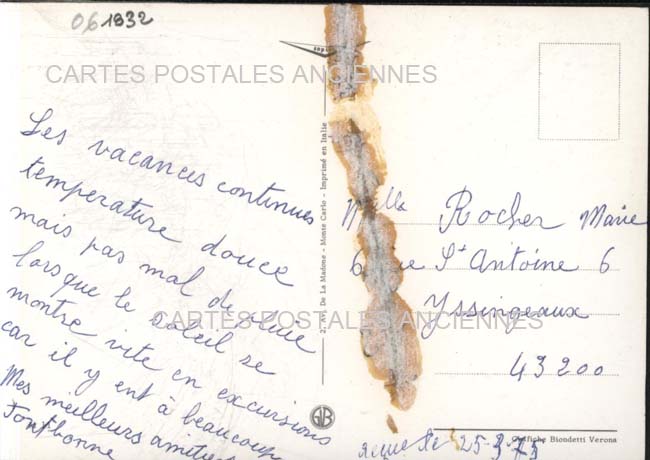 061832
CARTES POSTALES ANCIENNES
Les vacances continues
temperature douce
mais pas mal de pluie
lorsque le soleil se
montre vite en excursions
car il y ent à beaucoup
Mes meilleurs amitiés
Fontbonne
2, Av. De La Madone - Monte Carlo - Imprimé en Italie
Mlle Rocher Marie
6 St Antoine 6
Yssingeaux
CARTES POSTALES ANCIENNES
43200
GB
Grafiche Biondetti Verona
25-3-75